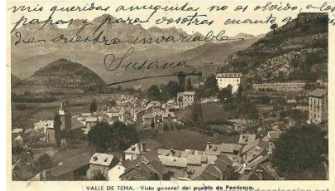 mis queridas amiguitas no os olvido, a los
papas y para vosotras cuanto
de nuestro invariable
Susana
VALLE DE TENA.-Vista general del pueblo de Panticosa.
todocoleccion.net